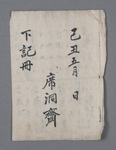 己丑五月 日
席洞齋
下記冊